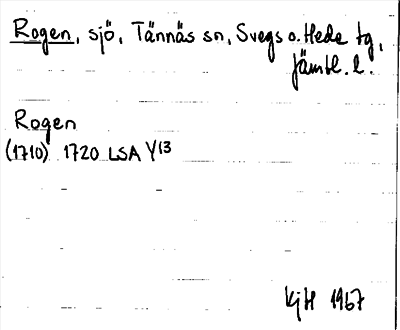 Rogen, sjö, Tännäs sn, Svegs o. Hede tg,
Jämtl. l.
Rogen
(1710) 1720 LSA Y13
KjH 1967